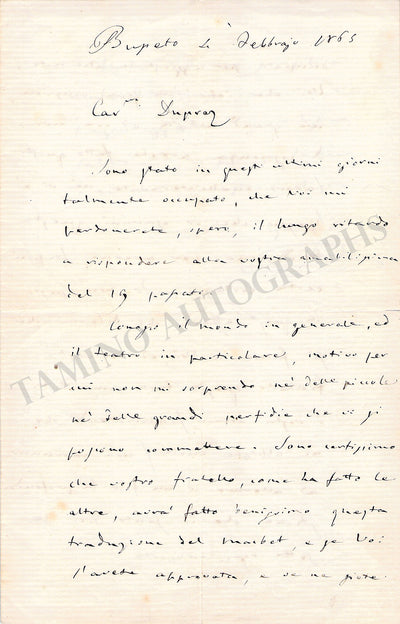 Busseto 2 Febbrajo 1865
Car.mo Duprez
Sono stato in questi ultimi giorni
talmente occupato, che voi mi
perdonerete, spero, il lungo ritardo
a rispondere alla vostra amabilissima
del 19 passato.
Conosco il mondo in generale, ed
il teatro in particolare, motivo per
cui non mi sorprendo nè delle piccole
nè delle grandi perfidie che vi si
possono commettere. Sono certissimo
che vostro fratello, come ha fatto le
altre, avrà fatto benissimo questa
traduzione del Macbet, e se Voi
l'avete approvata, e se ne siete
TAMINO AUTOGRAPHS